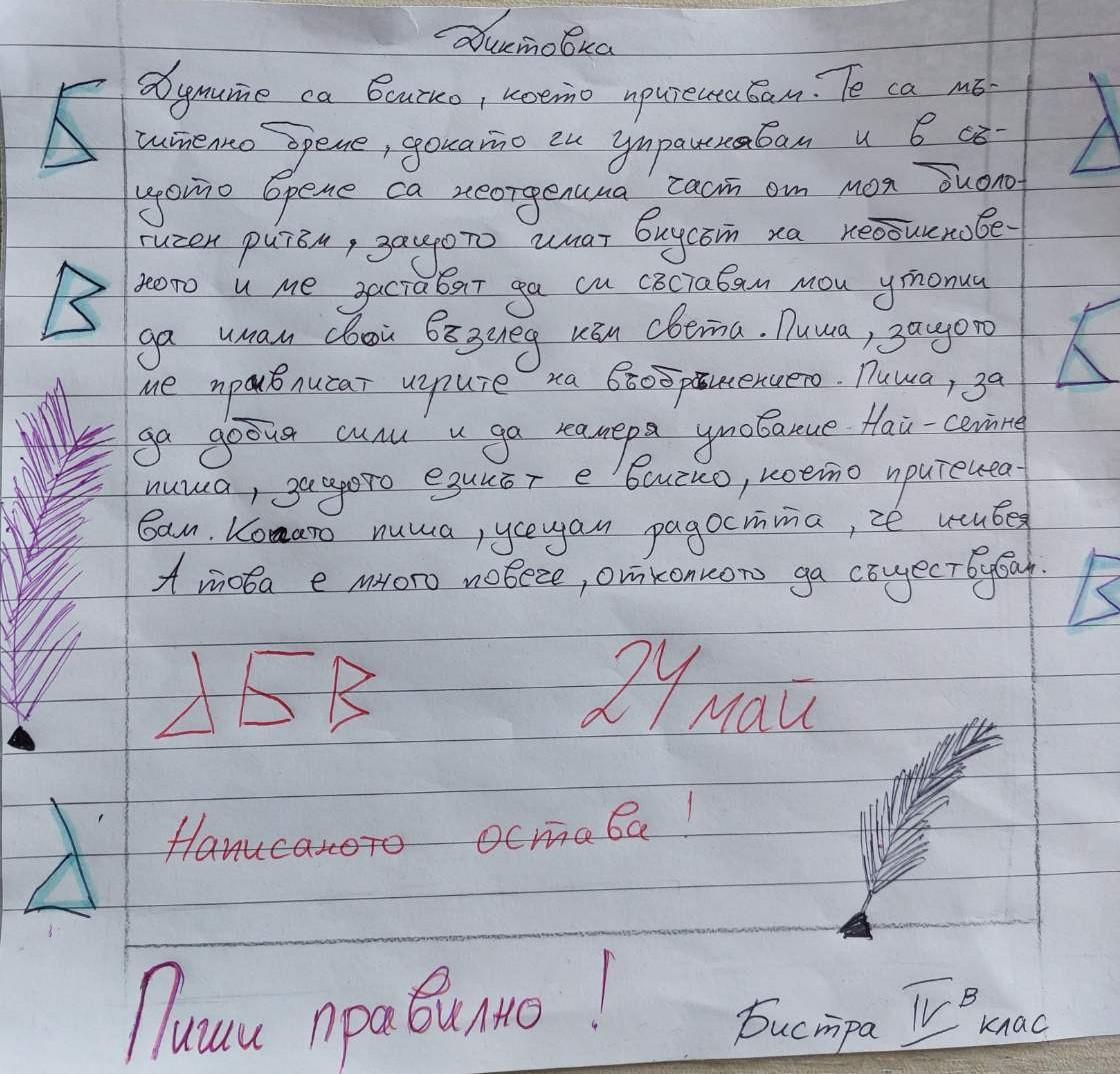 Диктовка
Думите са всичко, което притежавам. Те са мъ-
чително бреме, докато ги упражнявам и в съ-
щото време са неотделима част от моя биоло-
гичен ритъм, защото имат вкусът на необикнове-
ното и ме заставят да си съставям мои утопии
да имам свой възглед към света. Пиша, защото
ме привличат игрите на въображението. Пиша, за
да добия сили и да намеря упование. Най-сетне
пиша, защото езикът е всичко, което притежа-
вам. Когато пиша, усещам радостта, че живея
А това е много повече, отколкото да съществувам.
Б
В
А
А
Б
В
АБВ 24 май
Написаното остава!
Пиши правилно!
Бистра IV В клас